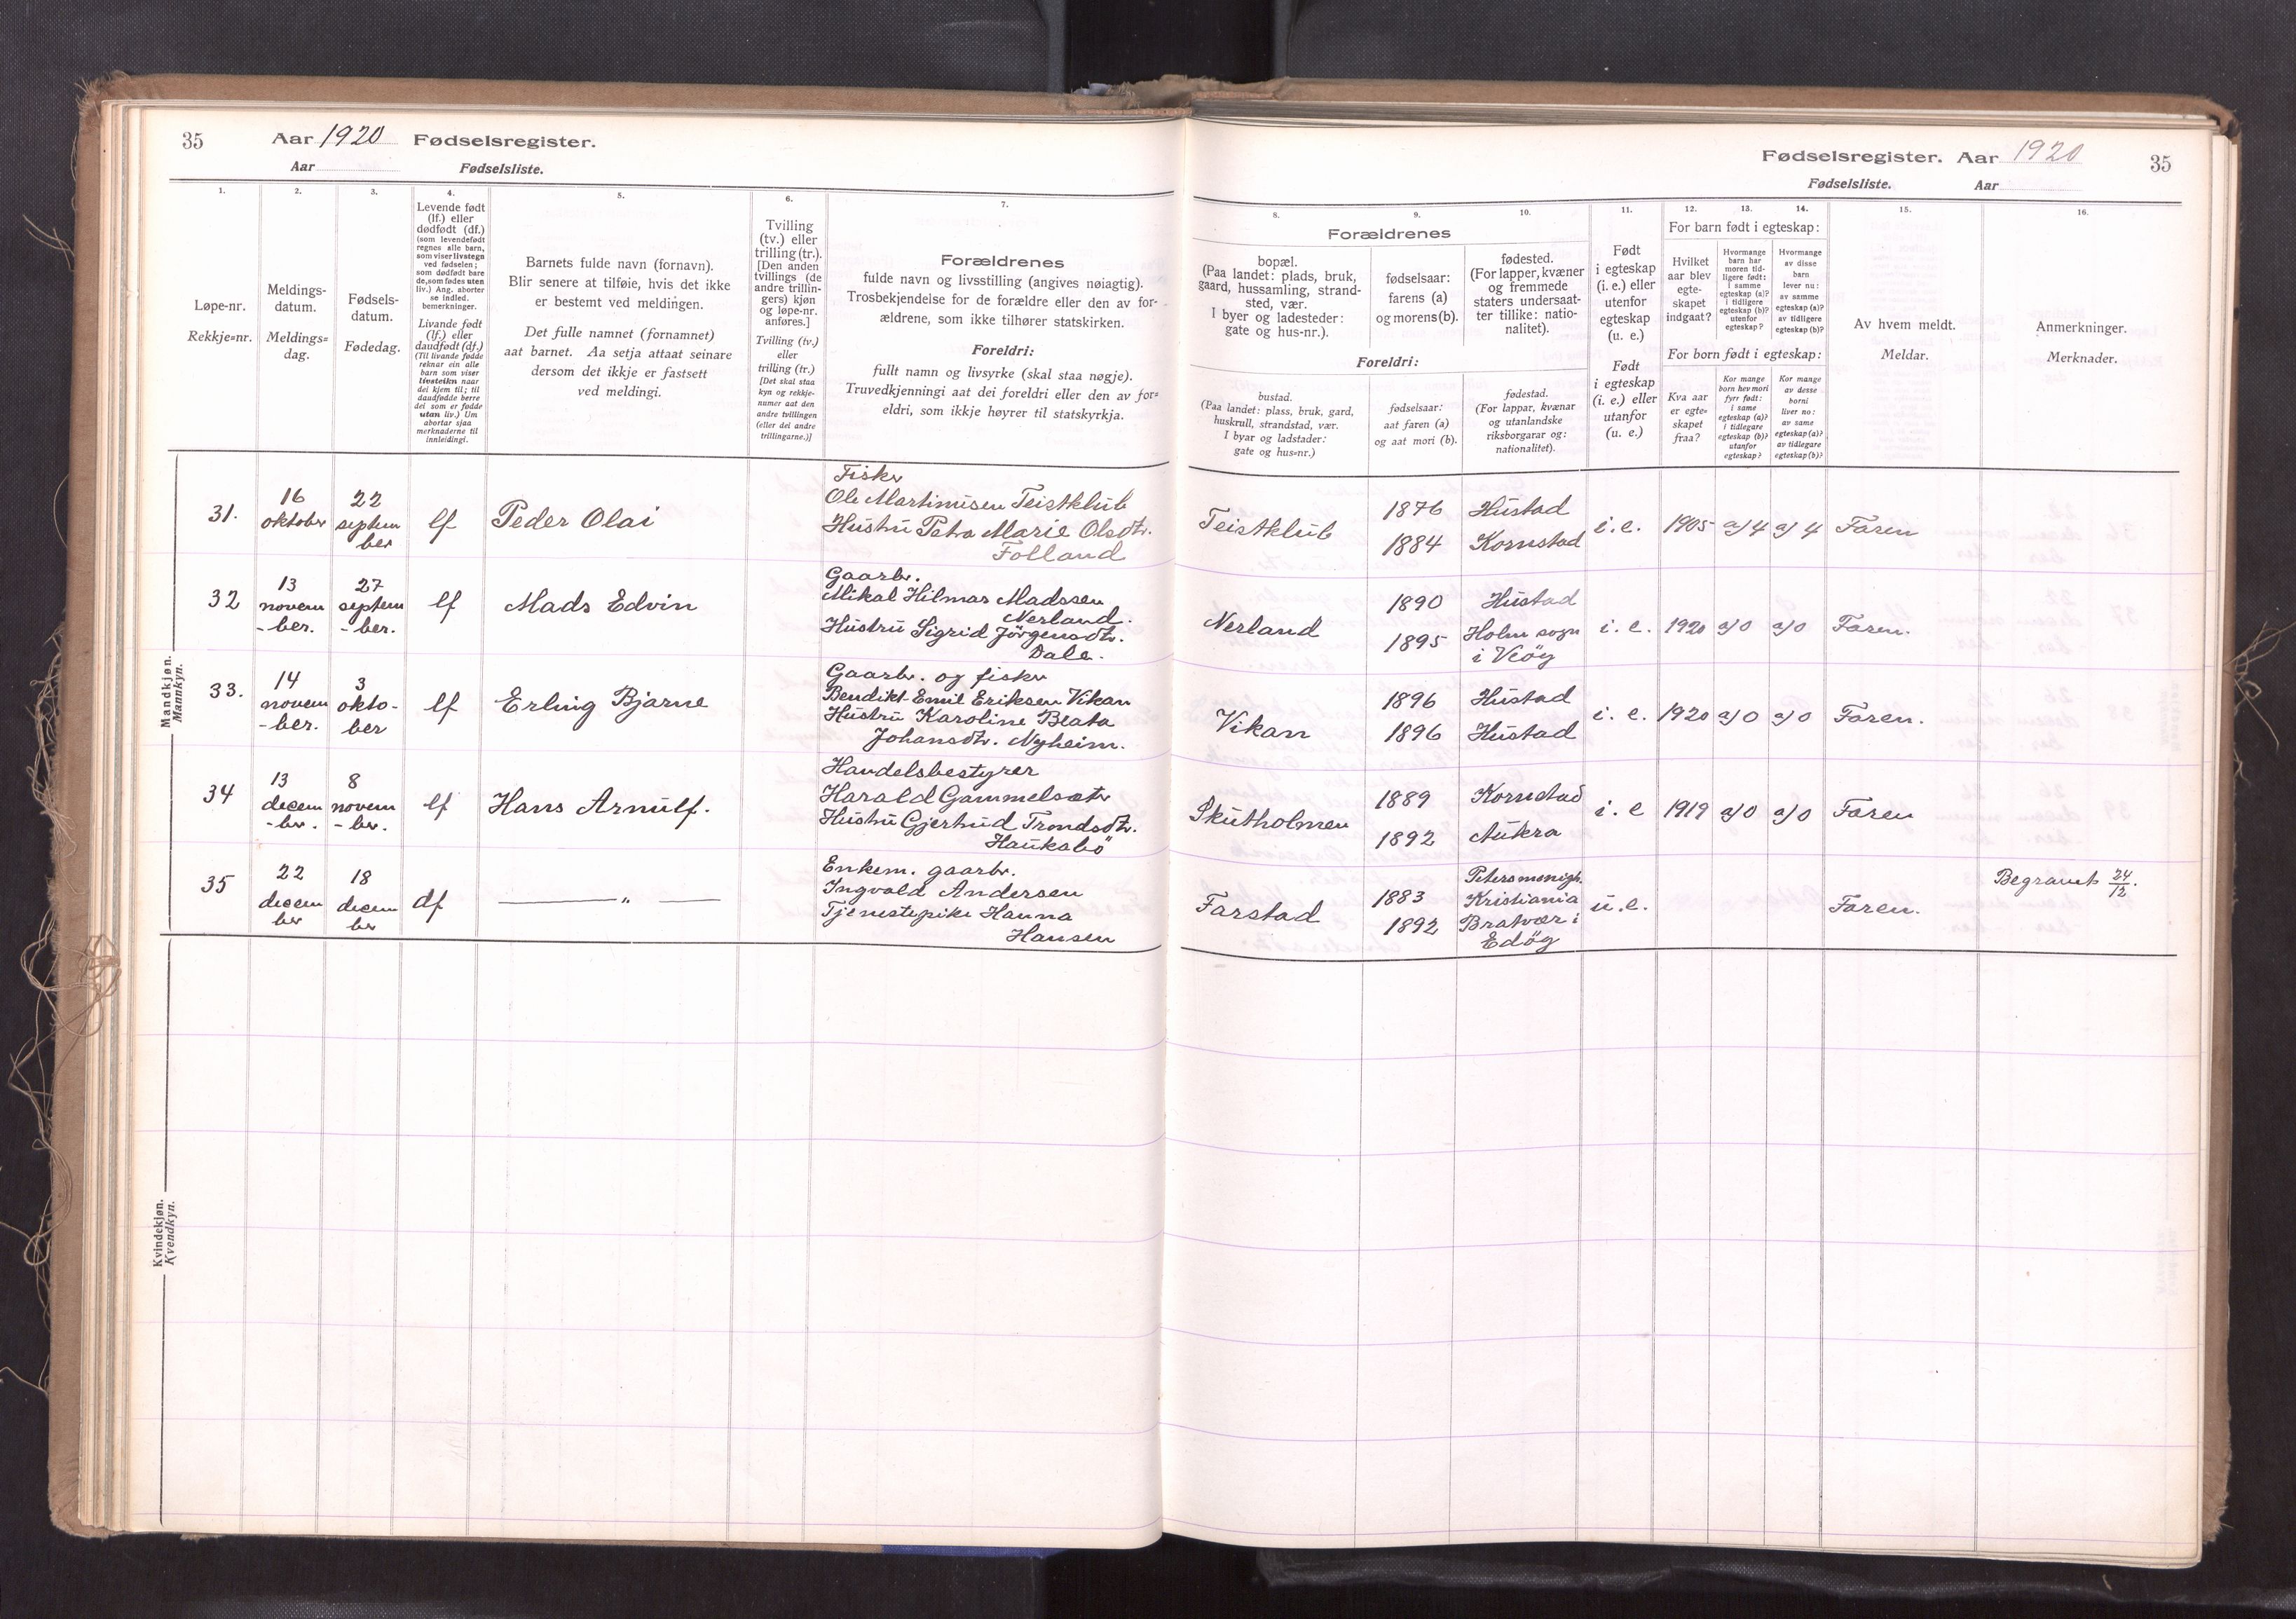 35 Aar 1920 Fødselsregister.
Aar Fødselsliste.
Fødselsregister. Aar 1920 35
Fødselsliste. Aar
1.
Løpe-nr.
Rekkje=nr.
2.
Meldings-
datum.
Meldings=
dag.
3.
Fødsels-
datum.
Fødedag.
4.
Levende født
(lf.) eller
dødfødt (df.)
(som levendefødt
regnes alle barn,
som viser livstegn
ved fødselen;
som dødfødt bare
de, som fødes uten
liv.) Ang. aborter
se indled.
bemerkninger.
Livande født
(lf.) eller
daudfødt (df.)
(Til livande fødde
reknar ein alle
barn som viser
livsteikn naar
dei kjem til; til
daudfødde berre
dei som er fødde
utan liv.) Um
abortar sjaa
merknaderne til
innleidingi.
5.
Barnets fulde navn (fornavn).
Blir senere at tilføie, hvis det ikke
er bestemt ved meldingen.
Det fulle namnet (fornamnet)
aat barnet. Aa setja attaat seinare
dersom det ikkje er fastsett
ved meldingi.
6.
Tvilling
(tv.) eller
trilling (tr.).
[Den anden
tvillings (de
andre trillin-
gers) kjøn
og løpe-nr.
anføres.]
Tvilling (tv.)
eller
trilling (tr.)
[Det skal staa
kyn og rekkje-
numer aat den
andre tvillingen
(eller dei andre
trillingarne.)]
7.
Forældrenes
fulde navn og livsstilling (angives nøiagtig).
Trosbekjendelse for de forældre eller den av for-
ældrene, som ikke tilhører statskirken.
Foreldri:
fullt namn og livsyrke (skal staa nøgje).
Truvedkjenningi aat dei foreldri eller den av for=
eldri, som ikkje høyrer til statskyrkja.
Forældrenes
8.
bopæl.
(Paa landet: plads, bruk,
gaard, hussamling, strand-
sted, vær.
I byer og ladesteder:
gate og hus-nr.).
9.
fødselsaar:
farens (a)
og morens (b).
10.
fødested.
(For lapper, kvæner
og fremmede
staters undersaat-
ter tillike: natio-
nalitet).
Foreldri:
bustad.
(Paa landet: plass, bruk, gard,
huskrull, strandstad, vær.
I byar og ladstader:
gate og hus=nr.)
fødselsaar:
aat faren (a)
og aat mori (b).
fødestad.
(For lappar, kvænar
og utanlandske
riksborgarar og:
nationalitet).
11.
Født
i egteskap
(i. e.) eller
utenfor
egteskap
(u. e.)
Født
i egteskap
(i. e.) eller
utanfor
(u. e.)
12. 13. 14.
For barn født i egteskap:
Hvilket
aar blev
egte-
skapet
indgaat?
Hvormange
barn har
moren tid-
ligere født:
i samme
egteskap (a)?
i tidligere
egteskap (b)?
utenfor
egteskap?
Hvormange
av disse
barn
lever nu:
av samme
egteskap (a)?
av tidligere
egteskap (b)?
For born født i egteskap:
Kva aar
er egte=
skapet
fraa?
Kor mange
born hev mori
fyrr født:
i same
egteskap (a)?
i tidlegare
egteskap (b)?
utanfor
egteskap?
Kor mange
av desse
borni
liver no:
av same
egteskap (a)?
av tidlegare
egteskap (b)?
15.
Av hvem meldt.
Meldar.
16.
Anmerkninger.
Merknader.
Mandkjøn.
Mannkyn.
31. 16 oktober 22 septem ber lf Peder Olai
Fisker
Ole Martinusen Teistklub
Hustru Petra Marie Olsdtr.
Folland
Teistklub 1876 Hustad
1884 Kornstad
i. e. 1905 a) 4 a) 4 Faren
32 13 novem -ber. 27 septem -ber. lf Mads Edvin
Gaarbr.
Mikal Hilmar Madssen
Nerland.
Hustru Sigrid Jörgensdtr.
Dale.
Nerland 1890 Hustad
1895 Holm sogn
i Veöy
i. e. 1920 a) 0 a) 0 Faren.
33. 14 novem -ber. 3 okto- ber lf Erling Bjarne
Gaarbr. og fisker
Bendikt Emil Eriksen Vikan
Hustru Karoline Beata
Johansdtr. Nyheim.
Vikan 1896 Hustad
1896 Hustad
i. e. 1920 a) 0 a) 0 Faren.
34 13 decem -ber. 8 novem -ber. lf Hans Arnulf.
Handelsbestyrer
Harald Gammelsæter
Hustru Gjertrud Trondsdtr.
Hauksbö
Skutholmen 1889 Kornstad
1892 Aukra
i. e 1919 a) 0 a) 0 Faren
35 22 decem ber 18 decem ber df — „ —
Enkem. gaarbr.
Ingvald Andersen
Tjenestepike Hanna
Hansen
Farstad 1883 Petersmenigh.
Kristiania
1892 Bratvær i
Edöy
u. e. Faren. Begravet 24/12.
Kvindekjøn.
Kvendkyn.